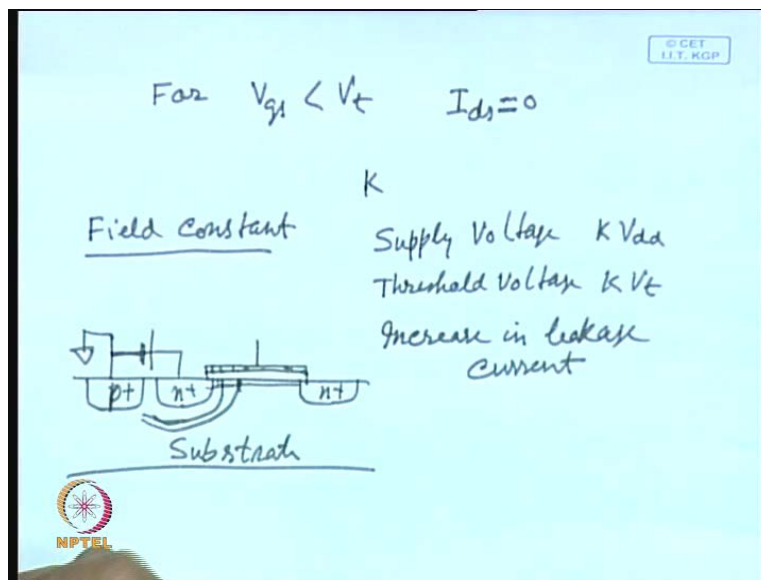 © CET
I.I.T. KGP
For Vgs < Vt Ids = 0
K
Field Constant
Supply Voltage K Vdd
Threshold Voltage K Vt
Increase in leakage
current
p+ n+ n+
Substrate
NPTEL